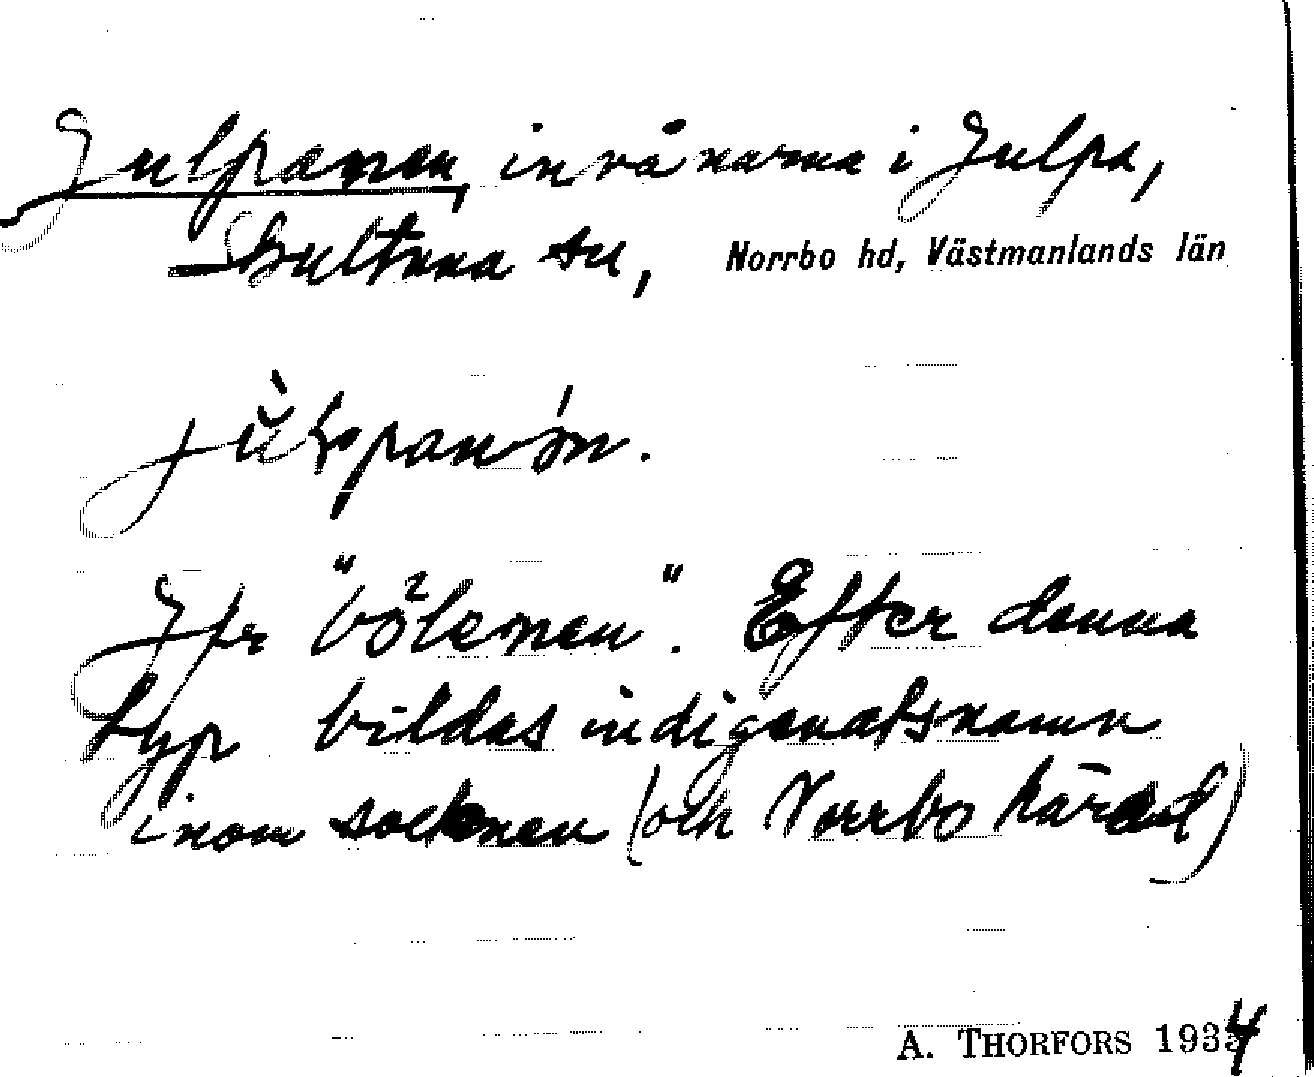 Julpanen, invånarna i Julpa,
Skultuna sn, Norrbo hd, Västmanlands län
Jfr "bölanen". Efter denna
typ bildas indigenatsnamn
inom socknen (och Norrbo härad)
A. THORFORS 1934